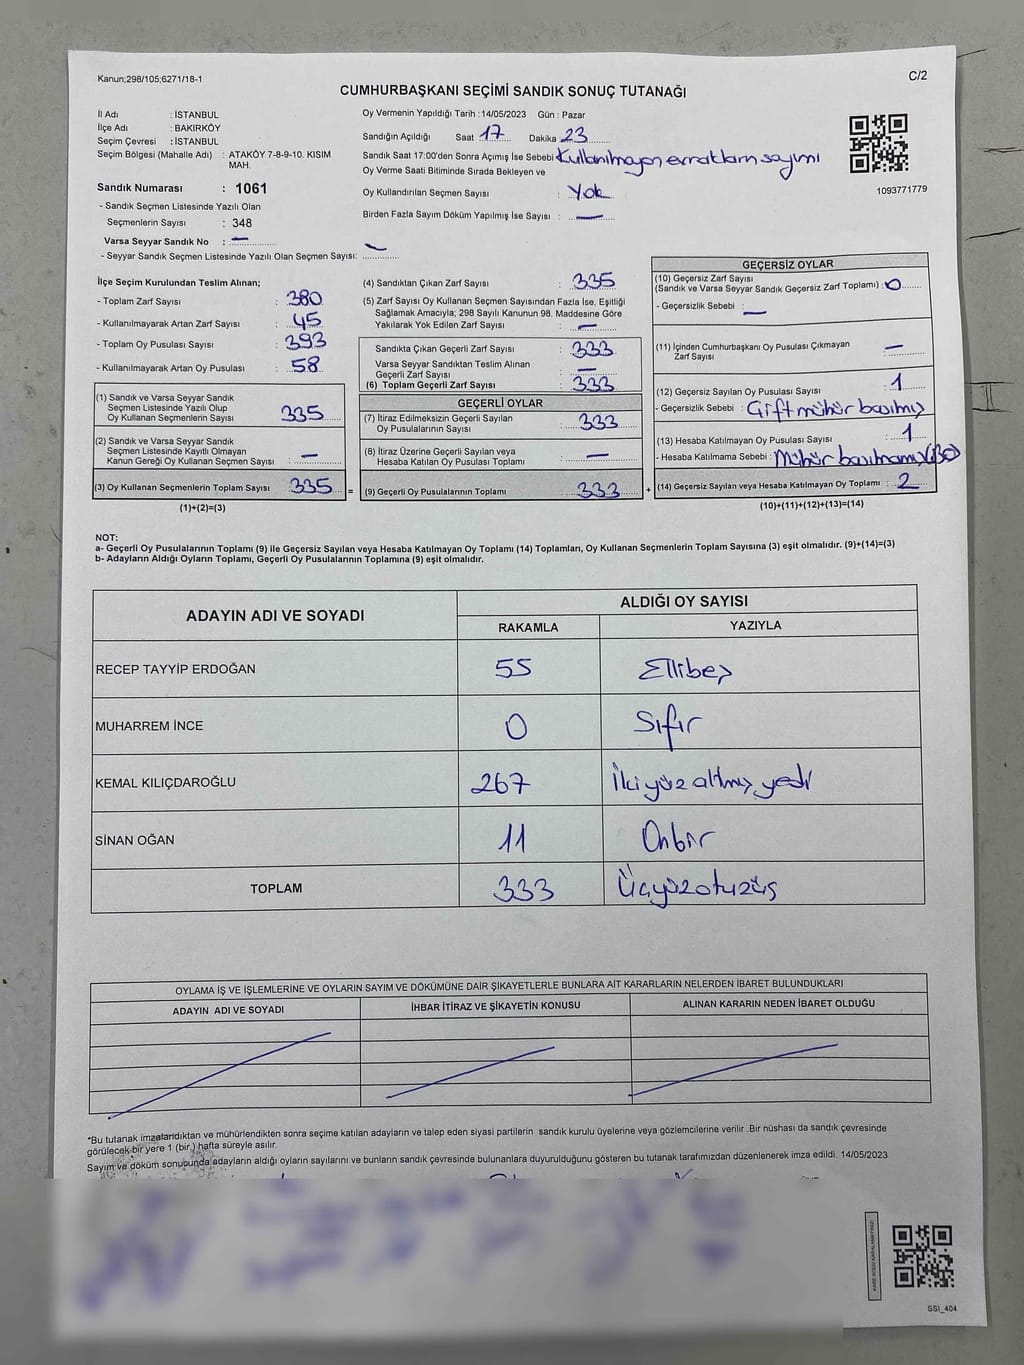 Kanun;298/105;6271/18-1
C/2
CUMHURBAŞKANI SEÇİMİ SANDIK SONUÇ TUTANAĞI
İl Adı : İSTANBUL
İlçe Adı : BAKIRKÖY
Seçim Çevresi : İSTANBUL
Seçim Bölgesi (Mahalle Adı) : ATAKÖY 7-8-9-10. KISIM
MAH.
Sandık Numarası : 1061
- Sandık Seçmen Listesinde Yazılı Olan
Seçmenlerin Sayısı : 348
Varsa Seyyar Sandık No : —
- Seyyar Sandık Seçmen Listesinde Yazılı Olan Seçmen Sayısı: —
Oy Vermenin Yapıldığı Tarih : 14/05/2023 Gün : Pazar
Sandığın Açıldığı Saat 17 Dakika 23
Sandık Saat 17:00'den Sonra Açımış İse Sebebi Kullanılmayan evrakların sayımı
Oy Verme Saati Bitiminde Sırada Bekleyen ve
Oy Kullandırılan Seçmen Sayısı : Yok
Birden Fazla Sayım Döküm Yapılmış İse Sayısı : —
1093771779
İlçe Seçim Kurulundan Teslim Alınan;
- Toplam Zarf Sayısı : 380
- Kullanılmayarak Artan Zarf Sayısı : 45
- Toplam Oy Pusulası Sayısı : 393
- Kullanılmayarak Artan Oy Pusulası : 58
(1) Sandık ve Varsa Seyyar Sandık
Seçmen Listesinde Yazılı Olup
Oy Kullanan Seçmenlerin Sayısı : 335
(2) Sandık ve Varsa Seyyar Sandık
Seçmen Listesinde Kayıtlı Olmayan
Kanun Gereği Oy Kullanan Seçmen Sayısı : —
(3) Oy Kullanan Seçmenlerin Toplam Sayısı 335 =
(1)+(2)=(3)
(4) Sandıktan Çıkan Zarf Sayısı : 335
(5) Zarf Sayısı Oy Kullanan Seçmen Sayısından Fazla İse, Eşitliği
Sağlamak Amacıyla; 298 Sayılı Kanunun 98. Maddesine Göre
Yakılarak Yok Edilen Zarf Sayısı : —
Sandıkta Çıkan Geçerli Zarf Sayısı : 333
Varsa Seyyar Sandıktan Teslim Alınan
Geçerli Zarf Sayısı : —
(6) Toplam Geçerli Zarf Sayısı : 333
GEÇERLİ OYLAR
(7) İtiraz Edilmeksizin Geçerli Sayılan
Oy Pusulalarının Sayısı : 333
(8) İtiraz Üzerine Geçerli Sayılan veya
Hesaba Katılan Oy Pusulası Toplamı : —
(9) Geçerli Oy Pusulalarının Toplamı : 333 +
GEÇERSİZ OYLAR
(10) Geçersiz Zarf Sayısı
(Sandık ve Varsa Seyyar Sandık Geçersiz Zarf Toplamı) : 0
- Geçersizlik Sebebi : —
(11) İçinden Cumhurbaşkanı Oy Pusulası Çıkmayan
Zarf Sayısı : —
(12) Geçersiz Sayılan Oy Pusulası Sayısı : 1
- Geçersizlik Sebebi : Çift mühür basılmış
(13) Hesaba Katılmayan Oy Pusulası Sayısı : 1
- Hesaba Katılmama Sebebi : Mühür basılmamış
(14) Geçersiz Sayılan veya Hesaba Katılmayan Oy Toplamı : 2
(10)+(11)+(12)+(13)=(14)
NOT:
a- Geçerli Oy Pusulalarının Toplamı (9) ile Geçersiz Sayılan veya Hesaba Katılmayan Oy Toplamı (14) Toplamları, Oy Kullanan Seçmenlerin Toplam Sayısına (3) eşit olmalıdır. (9)+(14)=(3)
b- Adayların Aldığı Oyların Toplamı, Geçerli Oy Pusulalarının Toplamına (9) eşit olmalıdır.
ADAYIN ADI VE SOYADI ALDIĞI OY SAYISI
RAKAMLA YAZIYLA
RECEP TAYYİP ERDOĞAN 55 Ellibeş
MUHARREM İNCE 0 Sıfır
KEMAL KILIÇDAROĞLU 267 İkiyüz altmış yedi
SİNAN OĞAN 11 Onbir
TOPLAM 333 Üçyüzotuzüç
OYLAMA İŞ VE İŞLEMLERİNE VE OYLARIN SAYIM VE DÖKÜMÜNE DAİR ŞİKAYETLERLE BUNLARA AİT KARARLARIN NELERDEN İBARET BULUNDUKLARI
ADAYIN ADI VE SOYADI İHBAR İTİRAZ VE ŞİKAYETİN KONUSU ALINAN KARARIN NEDEN İBARET OLDUĞU
*Bu tutanak imzalandıktan ve mühürlendikten sonra seçime katılan adayların ve talep eden siyasi partilerin sandık kurulu üyelerine veya gözlemcilerine verilir .Bir nüshası da sandık çevresinde
görülecek bir yere 1 (bir ) hafta süreyle asılır.
Sayım ve döküm sonucunda adayların aldığı oyların sayılarını ve bunların sandık çevresinde bulunanlara duyurulduğunu gösteren bu tutanak tarafımızdan düzenlenerek imza edildi. 14/05/2023
SSI_404